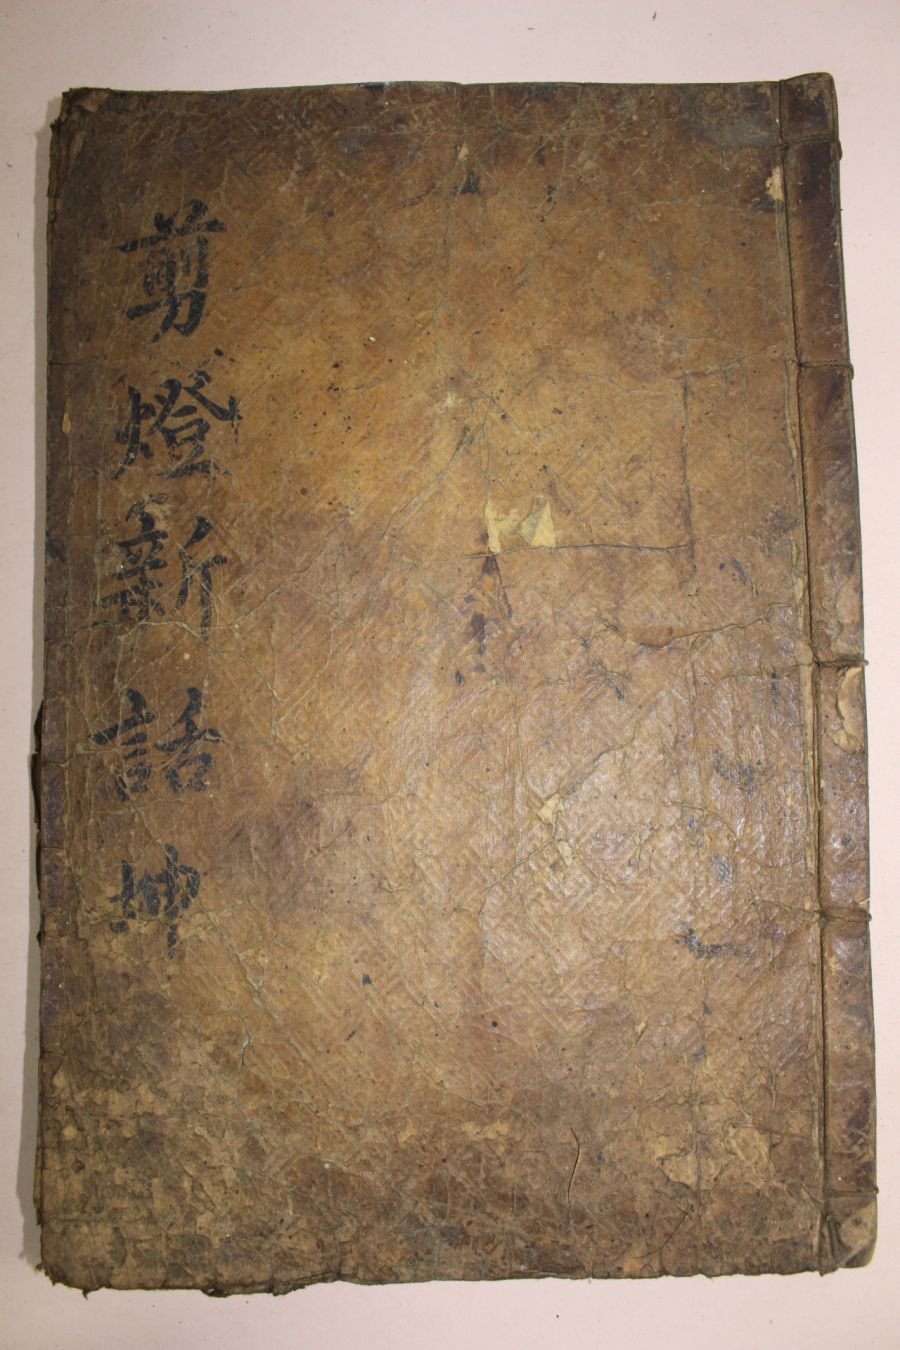 剪燈新話 坤